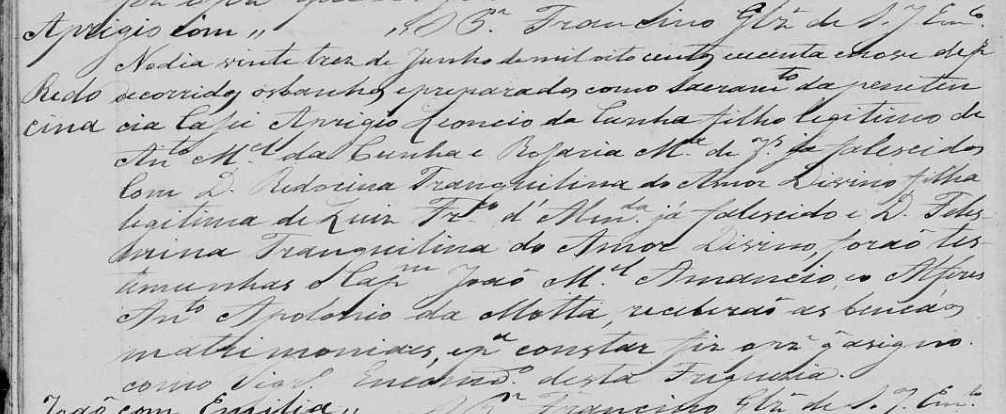 Aprigio com " " Pe. Francino Glz de S. J. Enco
No dia vinte trez de Junho de mil oito centos e nove de p
Redo decorridos os banhos, e preparados com o Sacramto da peneten
cina cia Casei Aprigio Leoncio da Cunha filho legitimo de
Anto Mel da Cunha e Rosaria Me de Js já falescidos
Com D. Redocina Tranquilina do Amor Divino, filha
legitima de Luiz Frco d'Almda já falescido e D. Feles-
mina Tranquilina do Amor Divino, forão tes-
temunhas o Capm João Mel Amancio, e o Alferes
Anto Apolonio da Motta, receberão as bencãos
matrimoniaes, e pa constar fiz o prz q asigno.
como Vigro Encomdo desta Freguezia.
João com Emilia " Pe Francino Glz de S. J. Enco